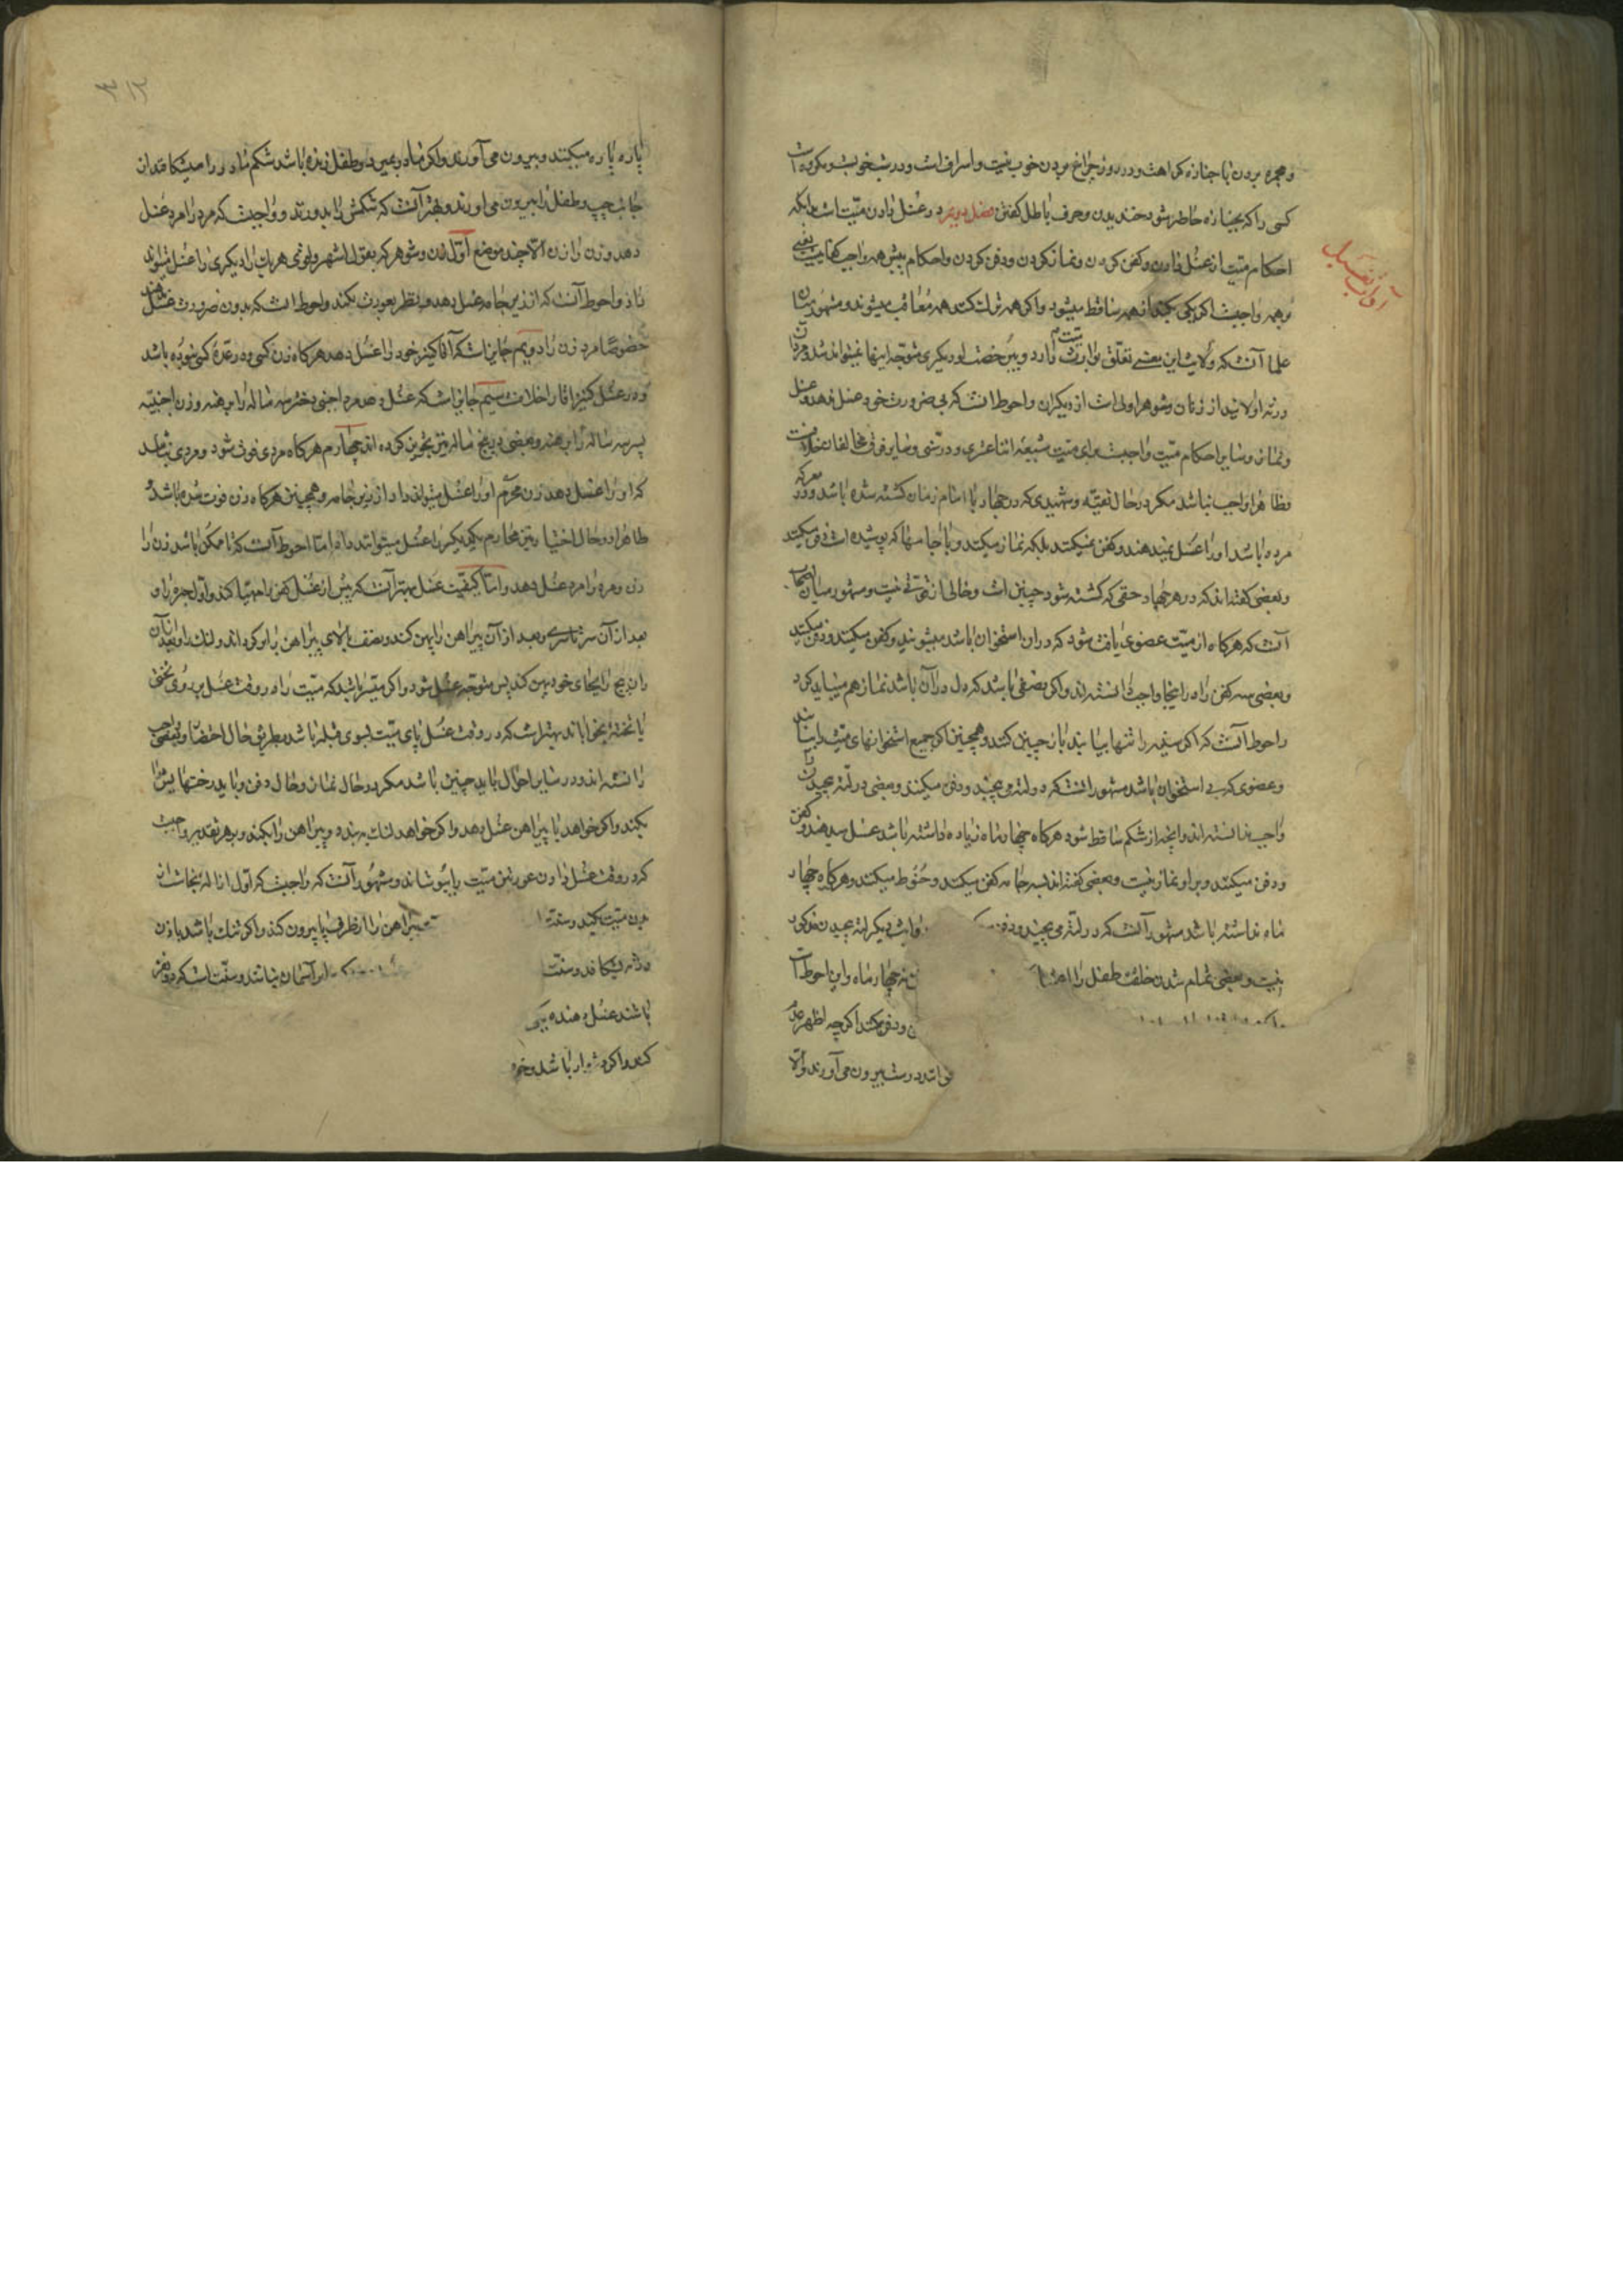 و مجمره بردن با جنازه کراهت و در روز چراغ بردن خوب نیست و اسراف است و در شب خوبست و مکروه است
کسی را که بجنازه حاضر شود خندیدن و حرف باطل گفتن فصل دویم در غسل دادن میّت است بدانکه
احکام میّت از غسل دادن و کفن کردن و نماز کردن و دفن کردن و احکام پیش همه واجب کفاییست یعنی
بر همه واجبست اگر یکی بکند از همه ساقط میشود و اگر همه ترک کنند همه معاقب میشوند و مشهور میان
علما آنست که ولایت این یعنی تعلّق بوارث میّت دارد و بی رخصت او دیگری متوجّه اینها نمیتواند شد و مردان
ورثه اولایند از زنان و شوهر اولی است از دیگران و احوط انست که بی ضرورت خود غسل ندهد و غسل
و نماز و سایر احکام میّت واجبست برای میّت شیعهٔ اثناعشری و در سنّی و سایر فرق مخالفان خلافست
و ظاهرا واجب نباشد مگر در حال تقیّه و شهیدی که در جهاد با امام زمان کشته شده باشد و در معرکه
مرده باشد او را غسل نمیدهند و کفن نمیکنند بلکه نماز میکنند و با جامهٔا که پوشیده است دفن میکنند
و بعضی گفته‌اند که در هر جهاد حقی که کشته شود چنین است و خالی از قوّتی نیست و مشهور میان اصحاب
آنست که هرگاه از میّت عضوی یافت شود که دران استخوان باشد میشویند و کفن میکنند و دفن میکنند
و بعضی سه کفن را در اینجا واجب دانسته‌اند و اگر نصفی باشد که دل در آن باشد نماز هم میباید کرد
و احوط آنست که اگر سینه را تنها بیابند باز چنین کنند و همچنین اگر جمیع استخوانهای میّت را بیابند
و عضوی که بی استخوان باشد مشهور انست که در لته می پیچند و دفن میکنند و بعضی در لته پیچیدن را
واجب ندانسته‌اند و آنچه از شکم ساقط شود هرگاه چهار ماه زیاده داشته باشد غسل میدهند و کفن
و دفن میکنند و بر او نماز نیست و بعضی گفته‌اند بسه جامه کفن میکنند و حنوط میکنند و هرگاه چهار
ماه نداشته باشد مشهور آنست که در لته می پیچند و دفن میکنند دیگر لته پیچیدن مذکور
نیست و بعضی تمام شدن خلقت طفل را نه چهار ماه و این احوط است
و دفن میکنند اگرچه اظهر
درست بیرون می آورند و الّا
آداب غسل
۳۱۲
پاره پاره میکنند و بیرون می آورند و اگر مادر بمیرد و طفل زنده باشد شکم مادر را میشکافند از
جانب چپ و طفل را بیرون می آورند و بهتر آنست که شکمش را بدوزند و واجبست که مرد را مرد غسل
دهد و زن را زن الّا چند موضع اوّل زن و شوهر که بقول اشهر و اقوی هر یک دیگری را غسل میتواند
داد و احوط آنست که از زیر جامه غسل دهد و نظر بعورت نکند و احوط است که بدون ضرورت غسل ندهند
خصوصًا مرد زن را دویم جایز است که آقا کنیز خود را غسل دهد هرگاه زن کسی و در عدّهٔ کسی نبوده باشد
و در غسل کنیز اقا را خلافست سیم جایز است که غسل دهد مرد اجنبی دختر سه ساله را برهنه و زن اجنبیّه
پسر سه ساله را برهنه و بعضی در پنج ساله نیز تجویز کرده اند چهارم هرگاه مردی فوت شود و مردی نباشد
که او را غسل دهد زن محرم او را غسل میتواند داد از زیر جامه و همچنین هرگاه زن فوت شده باشد و
ظاهرا در حال اختیار نیز محارم یکدیگر را غسل میتوانند داد امّا احوط آنست که تا ممکن باشد زن را
زن و مرد را مرد غسل دهد و امّا کیفیّت غسل بهتر آنست که پیش از غسل کفن را مهیّا کند و اوّل
بعد از آن سرتاسری و بعد از آن پیراهن را پهن کند و نصف بالای پیراهن را بر گرداند و لنگ را و بعد از آن
ران پیچ را بجای خود پهن کند پس متوجّه غسل شود و اگر میسّر باشد که میّت را در وقت غسل بر روی تختی
یا تخته بخواباند بهتر است که در وقت غسل پای میّت بسوی قبله باشد بطریق حال احتضار و بعضی واجب
دانسته‌اند و در سایر احوال باید چنین باشد مگر در حال نماز و حال دفن و باید رختهایش را
بکند و اگر خواهد با پیراهن غسل دهد و اگر خواهد لنگ ببندد و پیراهن را بکند و بهر تقدیر واجبست
که در وقت غسل دادن عورتین میّت را بپوشاند و مشهور آنست که واجبست که اوّل ازالهٔ نجاست از
بدن میّت بکنند و سنّت پیراهن را از طرف پا بیرون کند و اگر تنگ باشد باذن
بشکافد و سنّت آسمان نباشد و سنّت است که دو نفر
باشند غسل دهنده
کند و اگر دشوار باشد